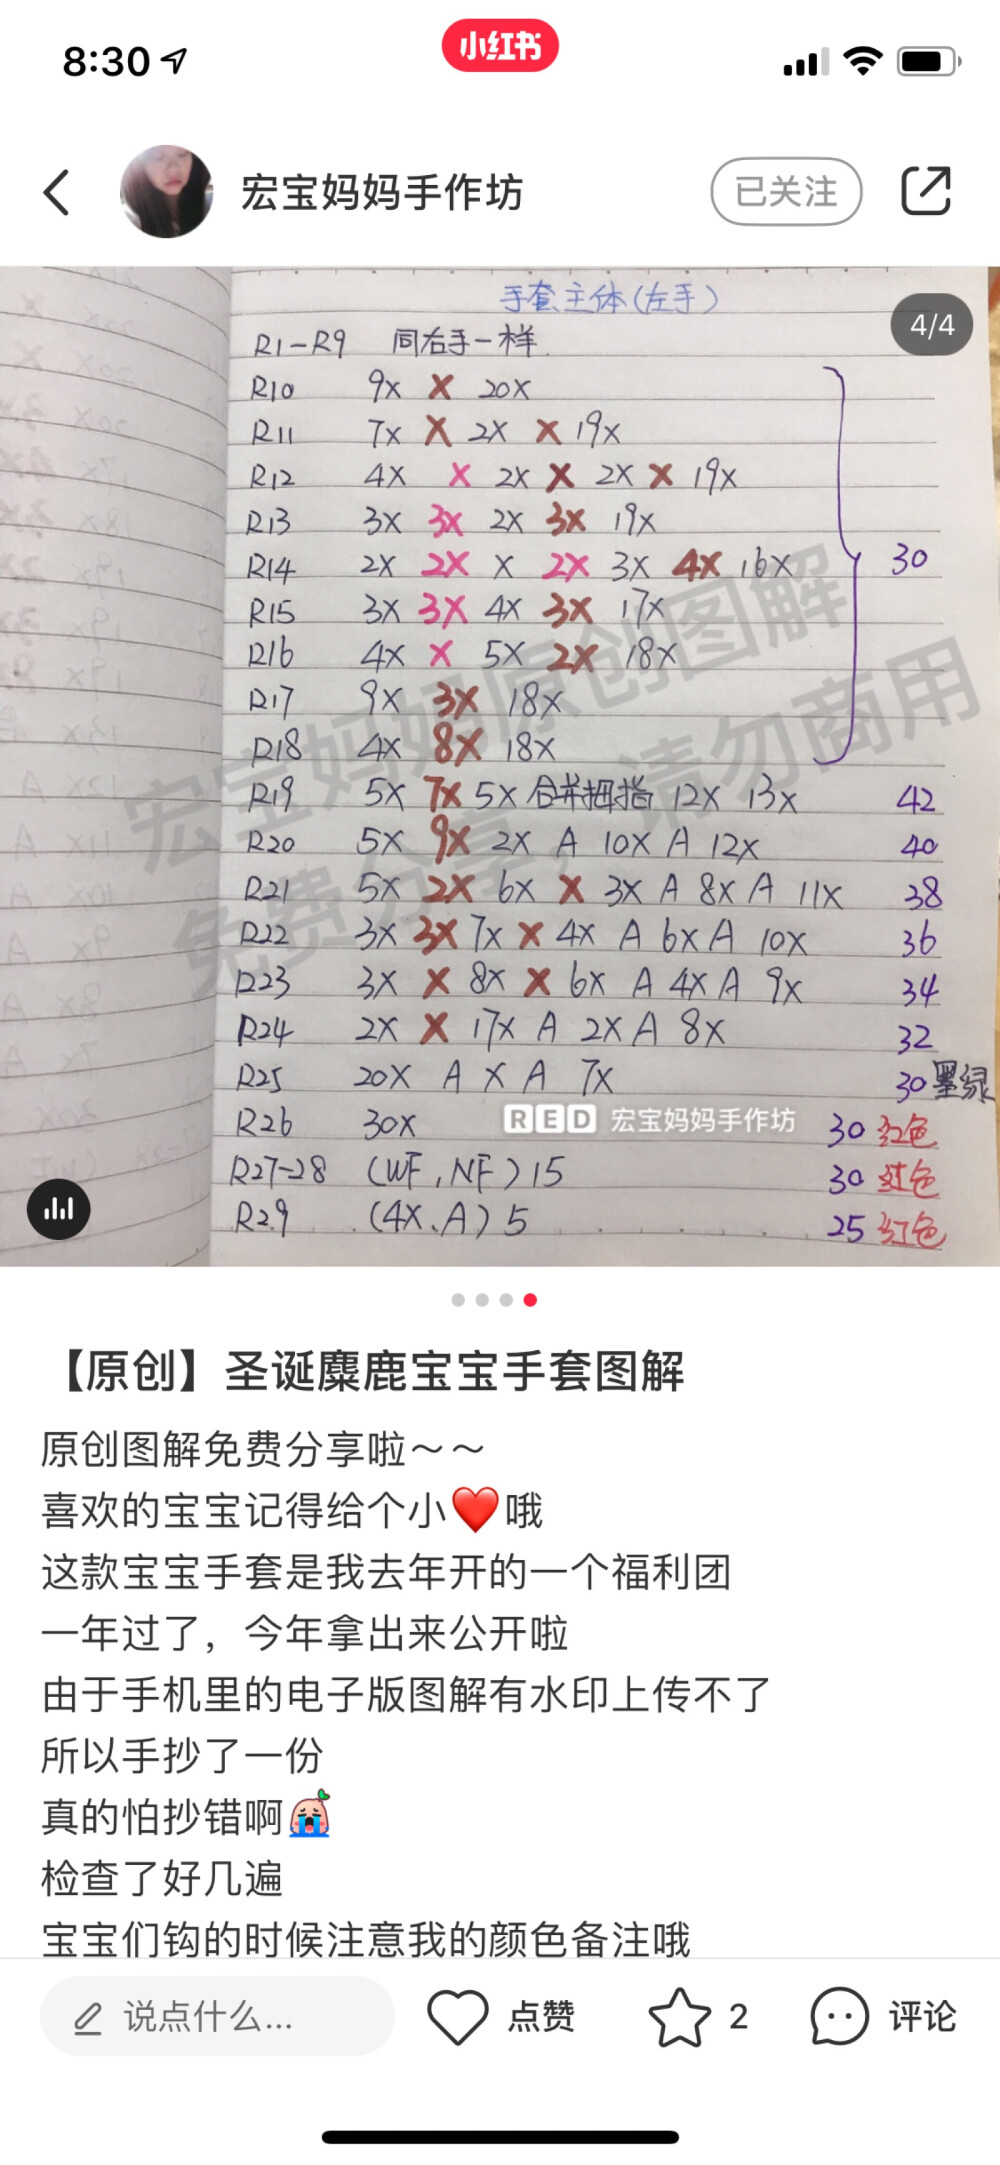 8:30
小红书
宏宝妈妈手作坊 已关注
手套主体(左手)
4/4
R1-R9 同右手一样
R10 9X X 20X
R11 7X X 2X X 19X
R12 4X X 2X X 2X X 19X
R13 3X 3X 2X 3X 19X
R14 2X 2X X 2X 3X 4X 16X 30
R15 3X 3X 4X 3X 17X
R16 4X X 5X 2X 18X
R17 9X 3X 18X
R18 4X 8X 18X
R19 5X 7X 5X 合并拇指 12X 13X 42
R20 5X 9X 2X A 10X A 12X 40
R21 5X 2X 6X X 3X A 8X A 11X 38
R22 3X 3X 7X X 4X A 6X A 10X 36
R23 3X X 8X X 6X A 4X A 9X 34
R24 2X X 17X A 2X A 8X 32
R25 20X A X A 7X 30 墨绿
R26 30X 30 红色
R27-28 (WF,NF)15 30 红色
R29 (4X、A)5 25 红色
宏宝妈妈原创图解
免费分享,请勿商用
RED 宏宝妈妈手作坊
【原创】圣诞麋鹿宝宝手套图解
原创图解免费分享啦~~
喜欢的宝宝记得给个小❤️哦
这款宝宝手套是我去年开的一个福利团
一年过了，今年拿出来公开啦
由于手机里的电子版图解有水印上传不了
所以手抄了一份
真的怕抄错啊
检查了好几遍
宝宝们钩的时候注意我的颜色备注哦
说点什么... 点赞 2 评论